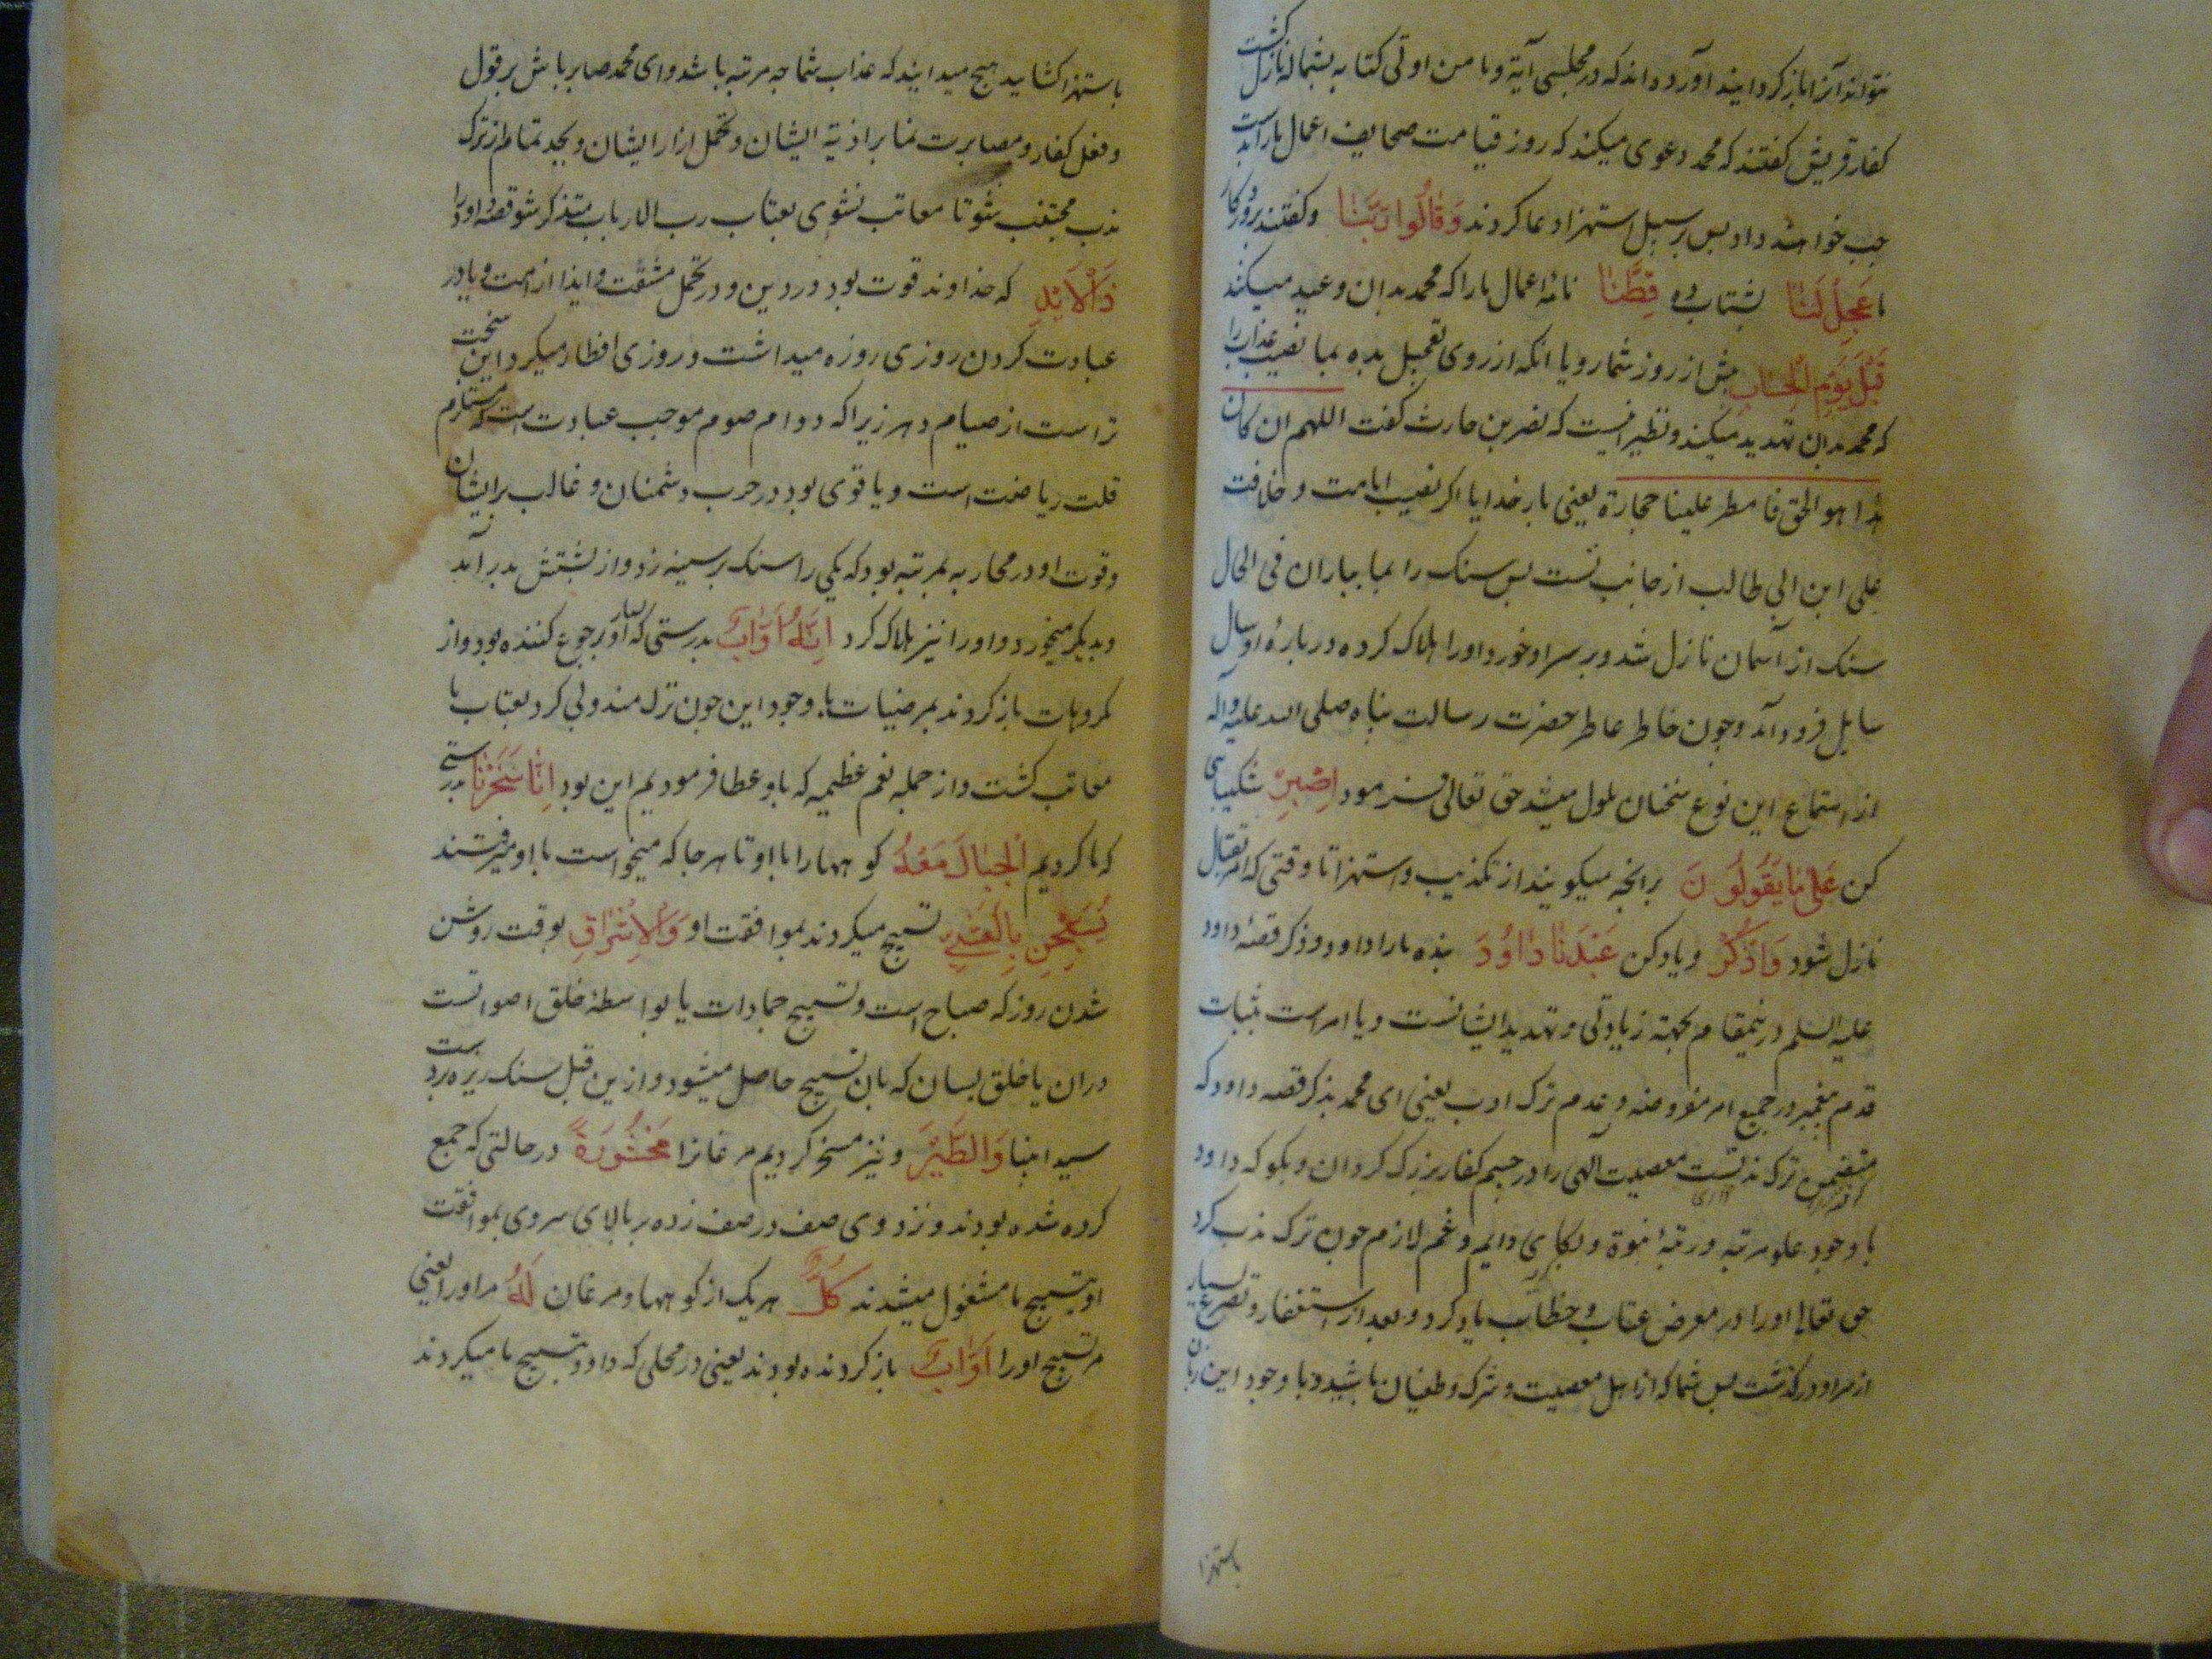 نتواند آنرا باز گردانید آورده‌اند که در مجلسی آیهٔ و اما من اوتی کتابه بشماله نازل گشت
کفار قریش گفتند که محمد دعوی میکند که روز قیامت صحایف اعمال ما را بدست
چپ خواهند داد پس بر سبیل استهزا دعا کردند وَقَالُوا رَبَّنَا و گفتند پروردگار
ما عَجِّلْ لَنَا بشتاب ده قِطَّنَا نامهٔ اعمال ما را که محمد بدان وعید میکند
قَبْلَ يَوْمِ الْحِسَابِ پیش از روز شمار و یا آنکه از روی تعجیل بده بما نصیب عذاب را
که محمد بدان تهدید میکند و نظیر اینست که نضر بن حارث گفت اللهم ان کان
هذا هو الحق فامطر علینا حجارة یعنی بار خدایا اگر نصیب امامت و خلافت
علی ابن ابی طالب از جانب تست پس سنگ را بما بباران فی الحال
سنگ از آسمان نازل شد و بر سر او خورد و او را هلاک کرده و در باره او سال
سایل فرود آمد و چون خاطر عاطر حضرت رسالت پناه صلی الله علیه و آله
از استماع این نوع سخنان ملول میشد حق تعالی فرمود اِصْبِرْ شکیبایی
کن عَلَى مَا يَقُولُونَ بر آنچه میگویند از تکذیب و استهزا تا وقتی که امر بقتال
نازل شود وَاذْكُرْ و یاد کن عَبْدَنَا دَاوُدَ بنده ما را داود و ذکر قصهٔ داود
علیه السلم در ینمقام بجهته زیادتی و تهدید ایشانست و یا امر است بثبات
قدم پیغمبر در جمیع امر مفروضه و عدم ترک ادب یعنی ای محمد بذکر قصه داود که
متضمن ترک ندبست معصیت آلهی را در چشم کفار بزرگ گردان و بگو که داود
با وجود علو مرتبه و رتبهٔ نبوة و بکای دایم و غم لازم چون ترک ندب کرد
حق تعالی او را در معرض عتاب و خطاب یاد کرد و بعد از استغفار و تضرع بسیار
از مر او در گذشت پس شما که از اهل معصیت و شرک و طغیان باشید و با وجود این زبان
باستهزا
باستهزا گشایید هیچ میدانید که عذاب شما چه مرتبه باشد و ای محمد صابر باش بر قول
و فعل کفار و مصابرت نما بر اذیة ایشان و تحمل ازار ایشان و بجد تمام از ترک
ندب مجتنب شو تا معاتب نشوی بعتاب رب الارباب متذکر شو قصهٔ داود را
ذَا الْاَيْدِ که خداوند قوت بود در دین و در تحمل مشقت و ایذا از امت و یا در
عبادت کردن روزی روزه میداشت و روزی افطار میکرد و این سخت
تر است از صیام دهر زیرا که دوام صوم موجب عبادت است که مستلزم
قلت ریاضت است و یا قوی بود در حرب دشمنان و غالب بر ایشان
و قوت او در محاربه بمرتبه بود که یکی را سنگ بر سینه زد و از پشتش بدر آمد
و بدیگر میخورد و او را نیز هلاک کرد اِنَّهُ اَوَّابٌ بدرستی که او بسیار رجوع کننده بود و از
مکروهات باز گردند بمرضیات با وجود این چون ترک مندوبی کرد بعتاب ما
معاتب گشت و از جمله نعم عظیمه که باو عطا فرمودیم این بود اِنَّا سَخَّرْنَا بدرستی
که ما کردیم الْجِبَالَ مَعَهُ کوهها را با او تا هر جا که میخواست با او میرفتند
يُسَبِّحْنَ بِالْعَشِيِّ تسبیح میکردند بموافقت او وَالْاِشْرَاقِ بوقت روشن
شدن روز که صباح است و تسبیح جمادات یا بواسطهٔ خلق اصواتست
در ان یا خلق لسان که بان تسبیح حاصل میشود و از ین قبل سنگ ریزه بردست
سید انبیا وَالطَّيْرَ و نیز مسخر کردیم مرغانرا مَحْشُورَةً در حالتی که جمع
کرده شده بودند و نزد وی صف در صف زده بر بالای سر وی بموافقت
او بتسبیح ما مشغول میشدند كُلٌّ هر یک از کوهها و مرغان لَهُ مر او را یعنی
مر تسبیح او را اَوَّابٌ باز گردنده بودند یعنی در محلی که داود تسبیح ما میکردند